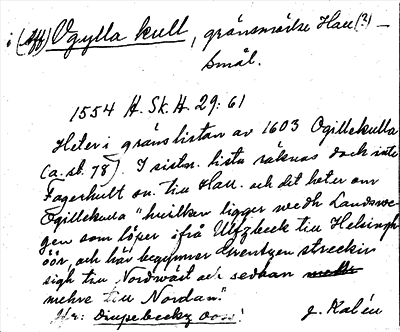 i (Aff) Ogylla kull, gränsmärke Hall (?) –
Smål.
1554 H. Sk. H. 29: 61
Heter i gränslistan av 1603 Ogillekulla
(a. st. 78). I sistn. lista räknas dock inte
Fagerhult sn. till Hall. och det heter om
Ogillekulla "hvilken ligger wedh Landswe-
gen som löper ifrå Utzbeck till Helsingh
öör, och här begynner Grentzen streckia
sigh till Nordwäst och sedhan
mehre till Nordan."
Hr: Diupebeckz oos! J. Kalén